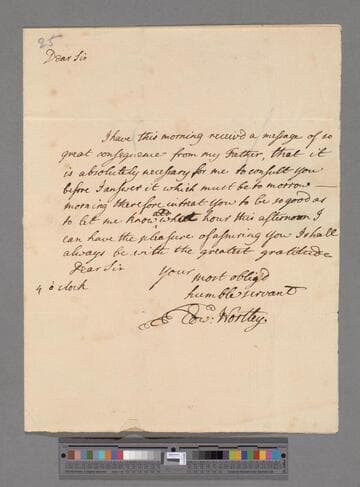 25
Dear Sir
I have this morning receivd a message of so
great consequence from my Father, that it
is absolutely necessary for me to consult you
before I answer it which must be to morrow
morning therefore intreat you to be so good as
to let me know at what hour this afternoon I
can have the pleasure of assuring you I shall
always be with the greatest gratitude
Dear Sir
Your most obligd
4 o clock
humble servant
Edw: Wortley.